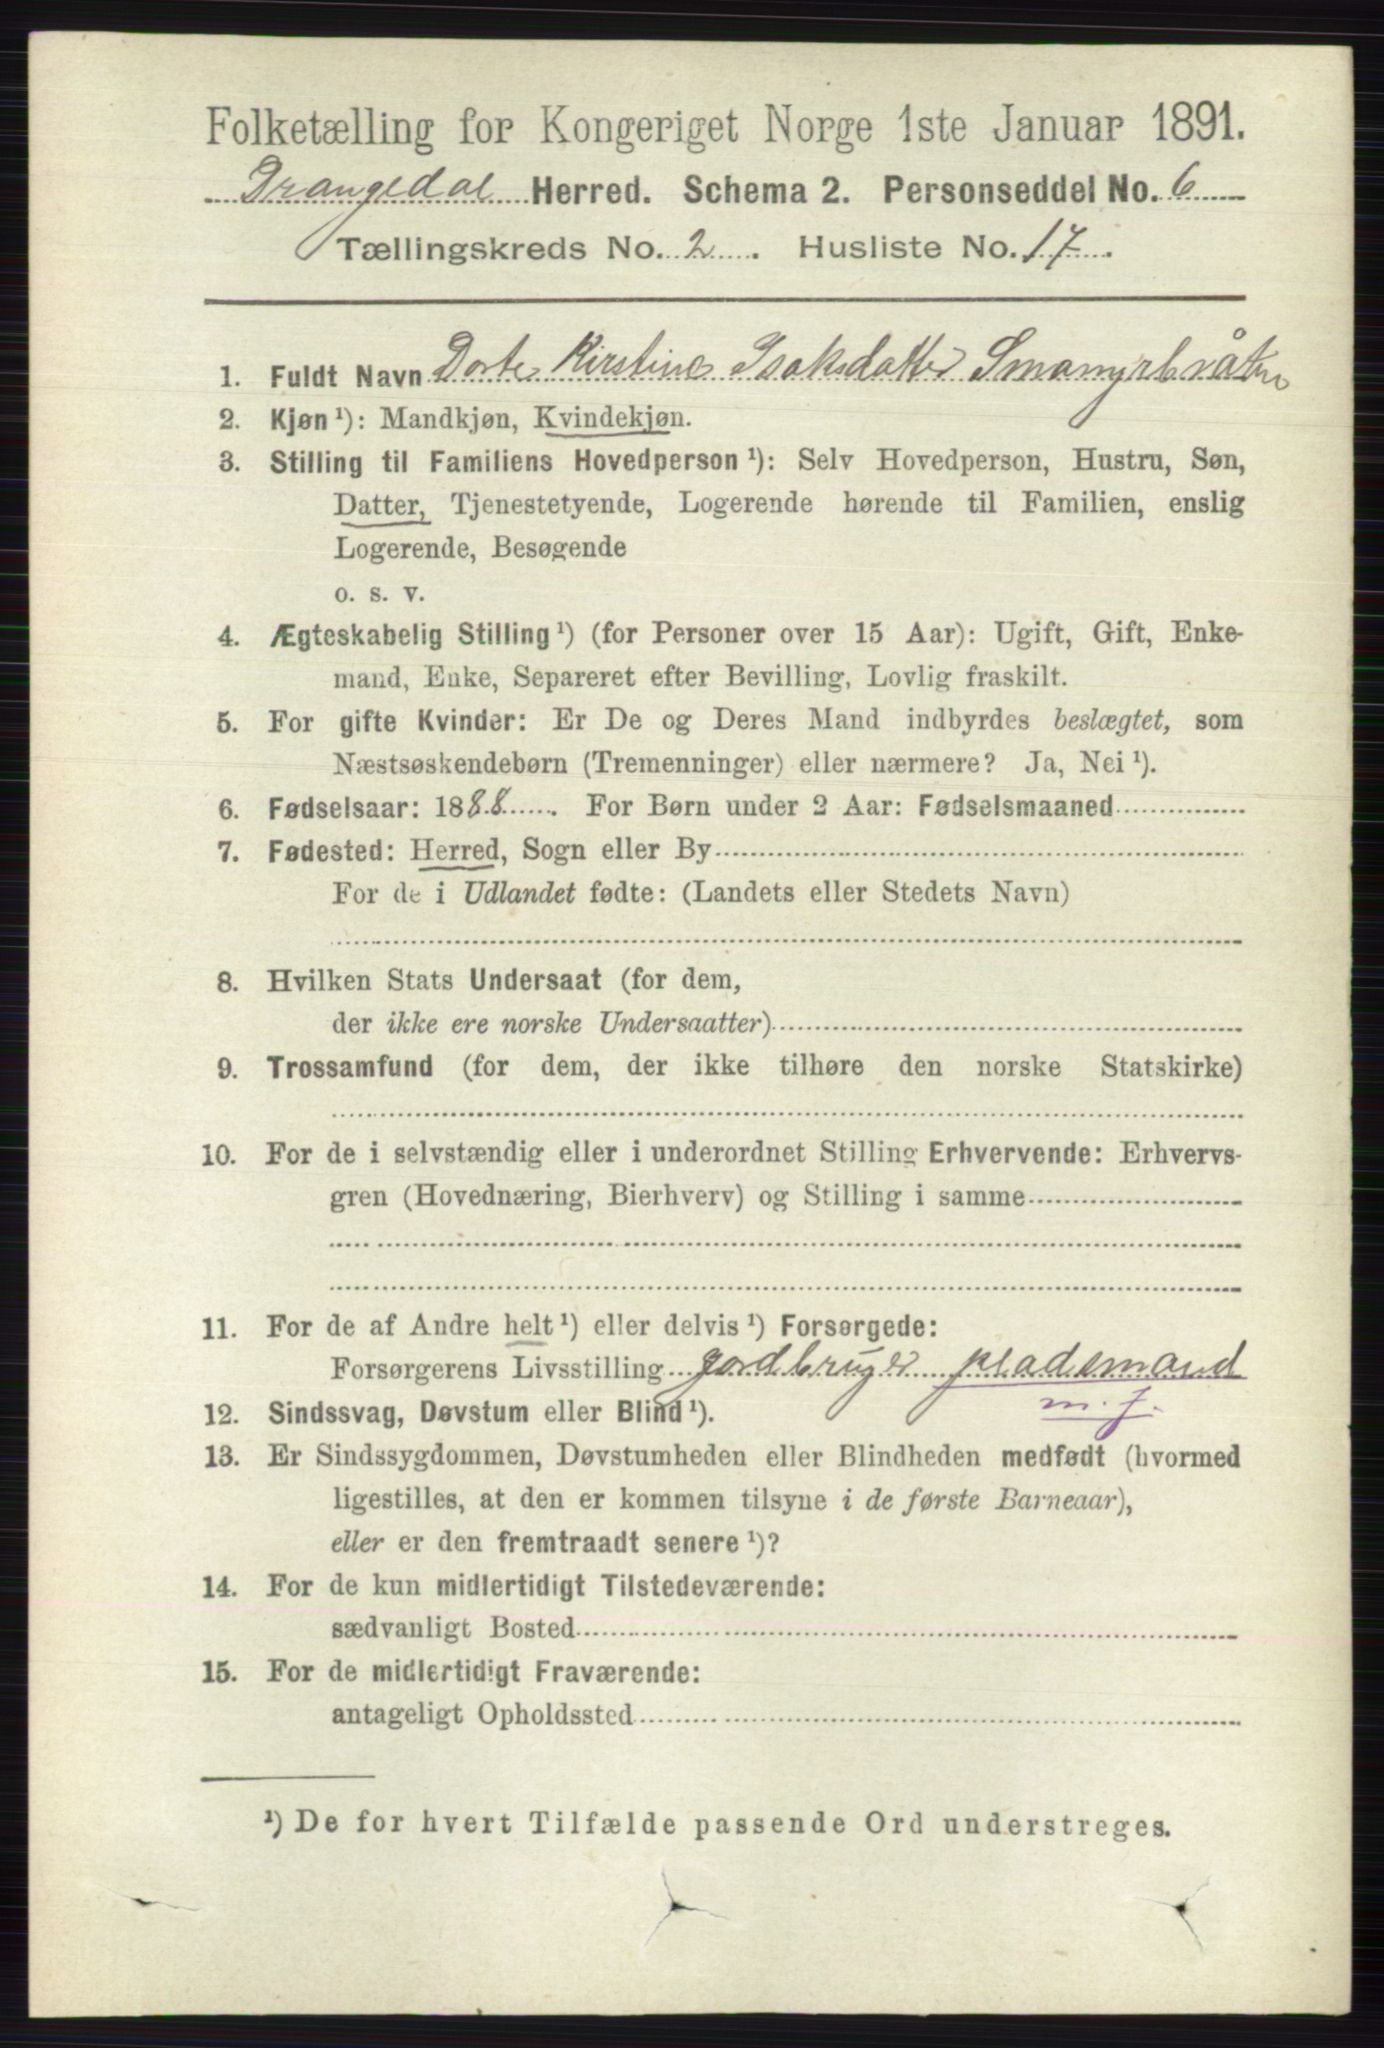 Folketælling for Kongeriget Norge 1ste Januar 1891.
Drangedal Herred. Schema 2. Personseddel No. 6
Tællingskreds No. 2. Husliste No. 17.
1. Fuldt Navn Dorte Kirstine Isaksdatter Smamyrbråten
2. Kjøn ¹): Mandkjøn, Kvindekjøn.
3. Stilling til Familiens Hovedperson ¹): Selv Hovedperson, Hustru, Søn,
Datter, Tjenestetyende, Logerende hørende til Familien, enslig
Logerende, Besøgende
o. s. v.
4. Ægteskabelig Stilling ¹) (for Personer over 15 Aar): Ugift, Gift, Enke-
mand, Enke, Separeret efter Bevilling, Lovlig fraskilt.
5. For gifte Kvinder: Er De og Deres Mand indbyrdes beslægtet, som
Næstsøskendebørn (Tremenninger) eller nærmere? Ja, Nei ¹).
6. Fødselsaar: 1888. For Børn under 2 Aar: Fødselsmaaned
7. Fødested: Herred, Sogn eller By
For de i Udlandet fødte: (Landets eller Stedets Navn)
8. Hvilken Stats Undersaat (for dem,
der ikke ere norske Undersaatter)
9. Trossamfund (for dem, der ikke tilhøre den norske Statskirke)
10. For de i selvstændig eller i underordnet Stilling Erhvervende: Erhvervs-
gren (Hovednæring, Bierhverv) og Stilling i samme
11. For de af Andre helt ¹) eller delvis ¹) Forsørgede:
Forsørgerens Livsstilling Jordbruger pladsmand
m. j.
12. Sindssvag, Døvstum eller Blind ¹).
13. Er Sindssygdommen, Døvstumheden eller Blindheden medfødt (hvormed
ligestilles, at den er kommen tilsyne i de første Barneaar),
eller er den fremtraadt senere ¹)?
14. For de kun midlertidigt Tilstedeværende:
sædvanligt Bosted
15. For de midlertidigt Fraværende:
antageligt Opholdssted
¹) De for hvert Tilfælde passende Ord understreges.